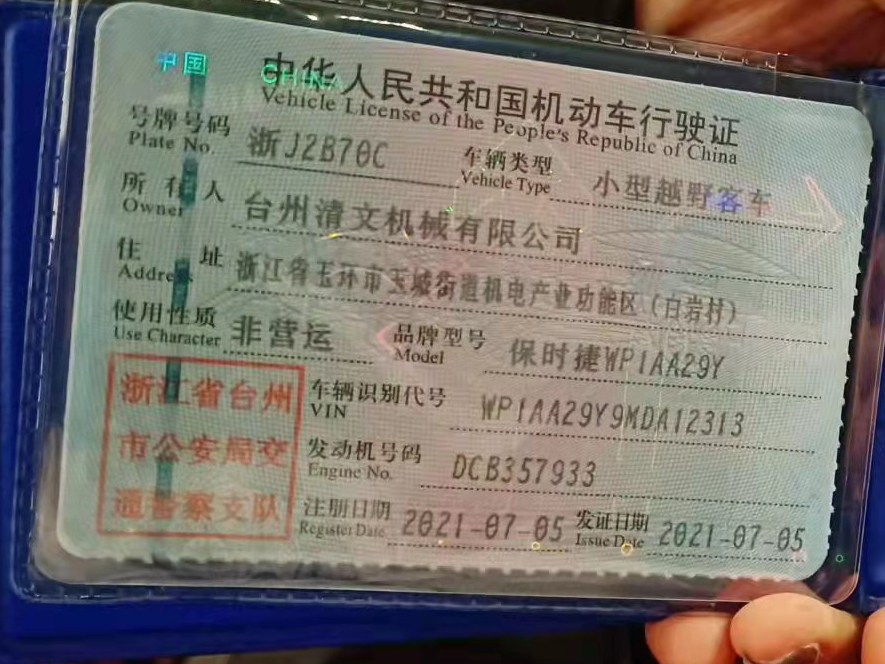 中国 CHINA
中华人民共和国机动车行驶证
Vehicle License of the People's Republic of China
号牌号码 浙J2B70C 车辆类型 小型越野客车
Plate No. Vehicle Type
所有人 台州清文机械有限公司
Owner
住址 浙江省玉环市玉城街道机电产业功能区(白岩村)
Address
使用性质 非营运 品牌型号 保时捷WP1AA29Y
Use Character Model
浙江省台州
市公安局交
通警察支队
车辆识别代号 WP1AA29Y9MDA12313
VIN
发动机号码 DCB357933
Engine No.
注册日期 2021-07-05 发证日期 2021-07-05
Register Date Issue Date